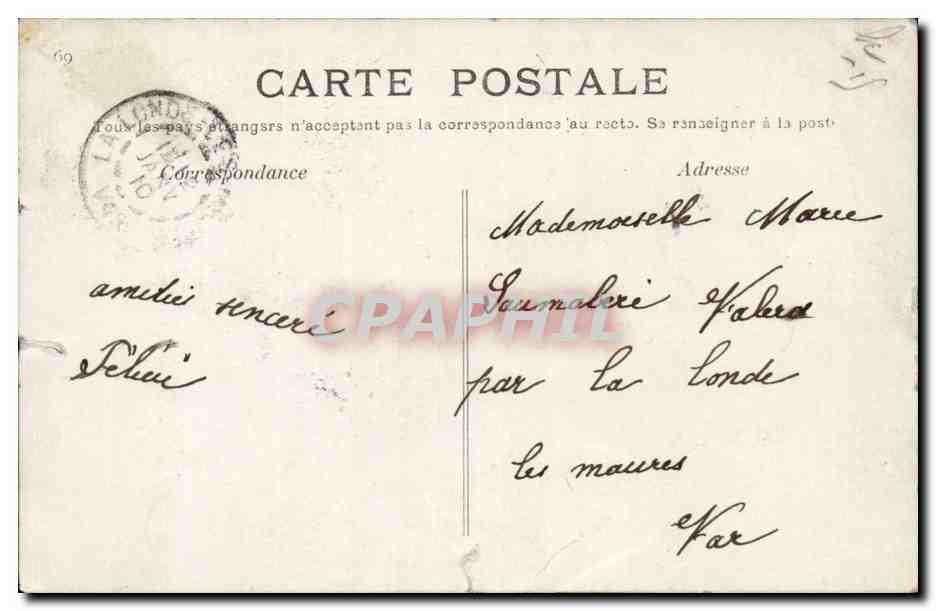 69
CARTE POSTALE
Tous les pays étrangers n'acceptent pas la correspondance au recto. Se renseigner à la poste
Correspondance
Adresse
LA LONDE-LES-M
JANV
10
Mademoiselle Marie
amitié sinceré
Félici
par la londe
les maures
Var
CPAPHIL